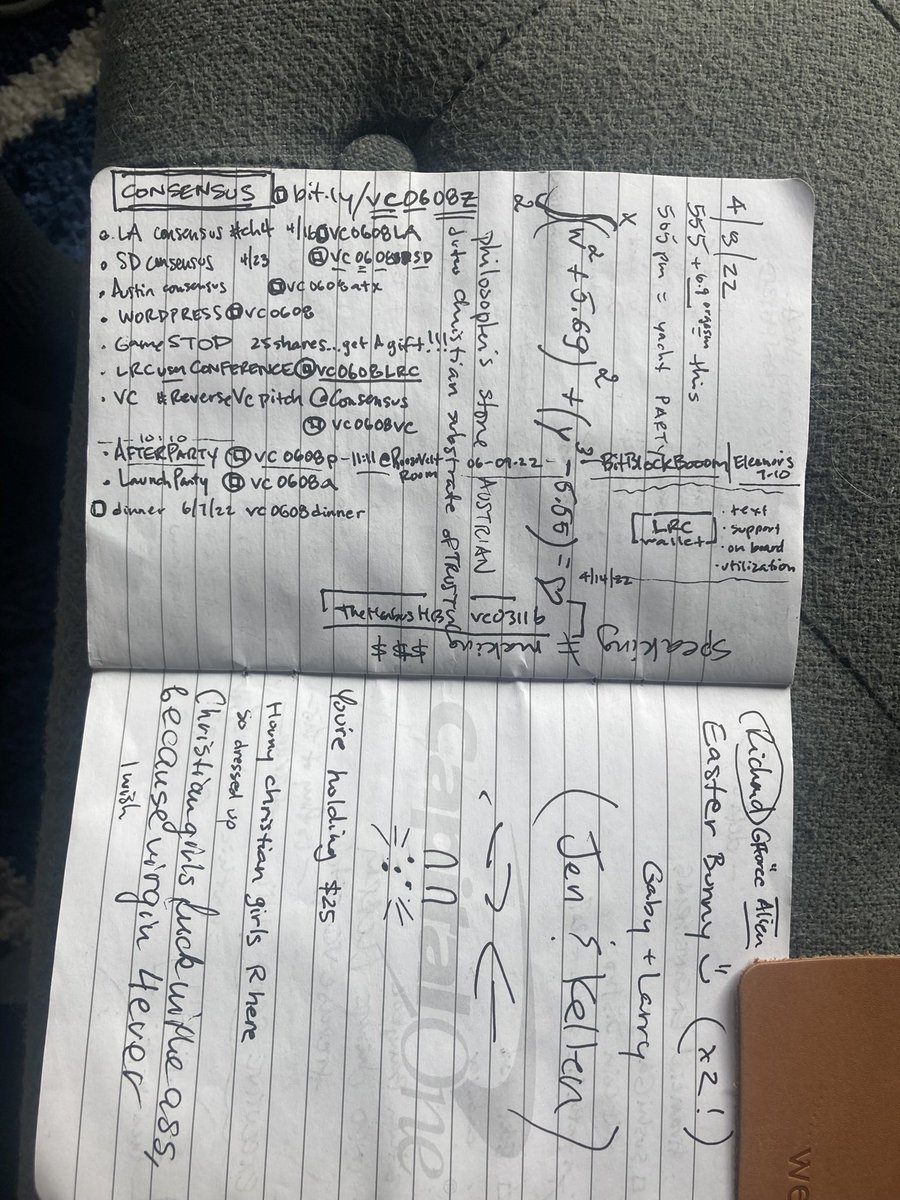 CONSENSUS bit.ly/VC0608Z
LA consensus #ch4 4/16 VC0608LA
SD consensus 4/23 VC0608SD
Austin consensus VC0608atx
WORDPRESS VC0608
GameSTOP 25 shares...get A gift!!!!
LRC CONFERENCE VC0608LRC
VC #ReverseVCpitch @Consensus
VC0608VC
10:10
AFTERPARTY VC0608p-11:11@Roosevelt
Room
Launch Party VC0608a
dinner 6/7/22 VC0608dinner
06-09-22 - BitBlockBooom Eleanor's
7-10
LRC
wallet
text
support
on board
utilization
4/14/22
VC0311b
4/9/22
555 + 6.9 orgasm this
505 pm = yacht PARTY
philosopher's stone AUSTRIAN
christian substrate of TRUST
speaking
making
$$$
Richard GForce Alien
Easter Bunny (x2!)
Gaby + Larry
(Jen & Kellen)
Capital One
You're holding $25
Horny christian girls R here
so dressed up
Christian girls fuck in the ass,
because virgin 4ever
I wish
we